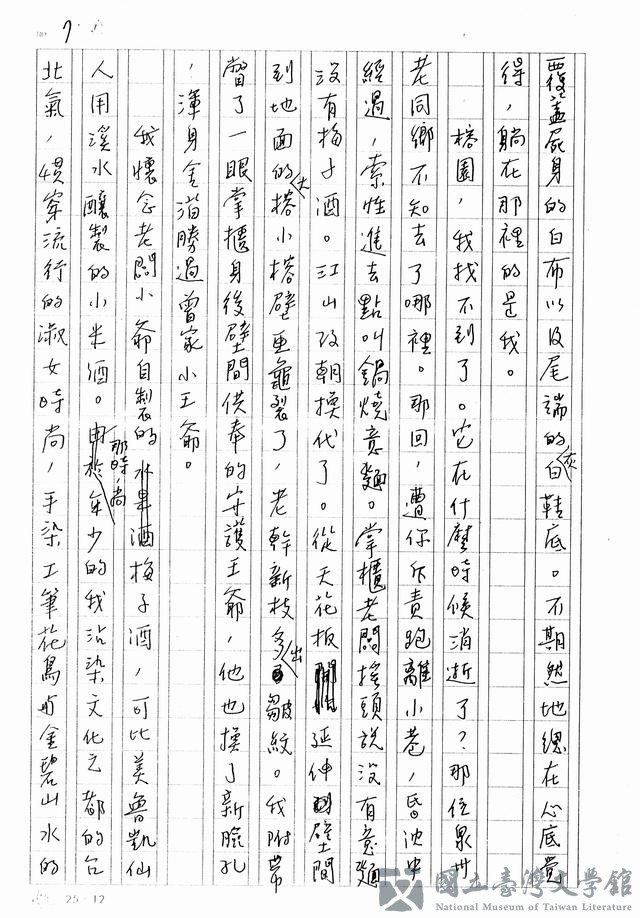 7
覆蓋屍身的白布以及尾端的灰白鞋底。不期然地總在心底覺
得，躺在那裡的是我。
榕園，我找不到了。它在什麼時候消逝了？那位泉州
老同鄉不知去了哪裡。那回，遭你斥責跑離小巷，昏沈中
經過，索性進去點叫鍋燒意麵。掌櫃老闆搖頭說沒有意麵
沒有梅子酒。江山改朝換代了。從天花板延伸壁間
到地面的大榕小榕壁面龜裂了，老幹新枝多出皺紋。我附帶
瞥了一眼掌櫃身後壁間供奉的守護王爺，他也換了新臉孔
，渾身金箔勝過曾家小王爺。
我懷念老闆小爺自製的水果酒梅子酒，可比美魯凱仙
人用溪水釀製的小米酒。那時，尚年少的我沾染文化之都的台
北氣，慣穿流行的淑女時尚，手染工筆花鳥與金碧山水的
25×12
國立臺灣文學館
National Museum of Taiwan Literature